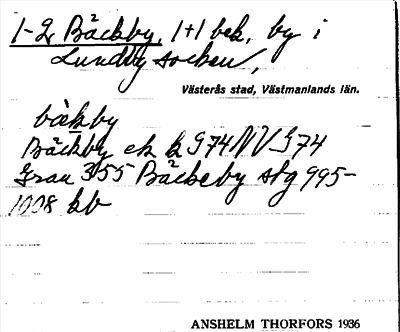 1-2, Bäckby, 1+1 bek, by i
Lundby socken,
Västerås stad, Västmanlands län.
bäkby
Bäckby ek k G74NV G74
Grau 3/55 Bäckeby stg 995-
1008 kb
ANSHELM THORFORS 1936